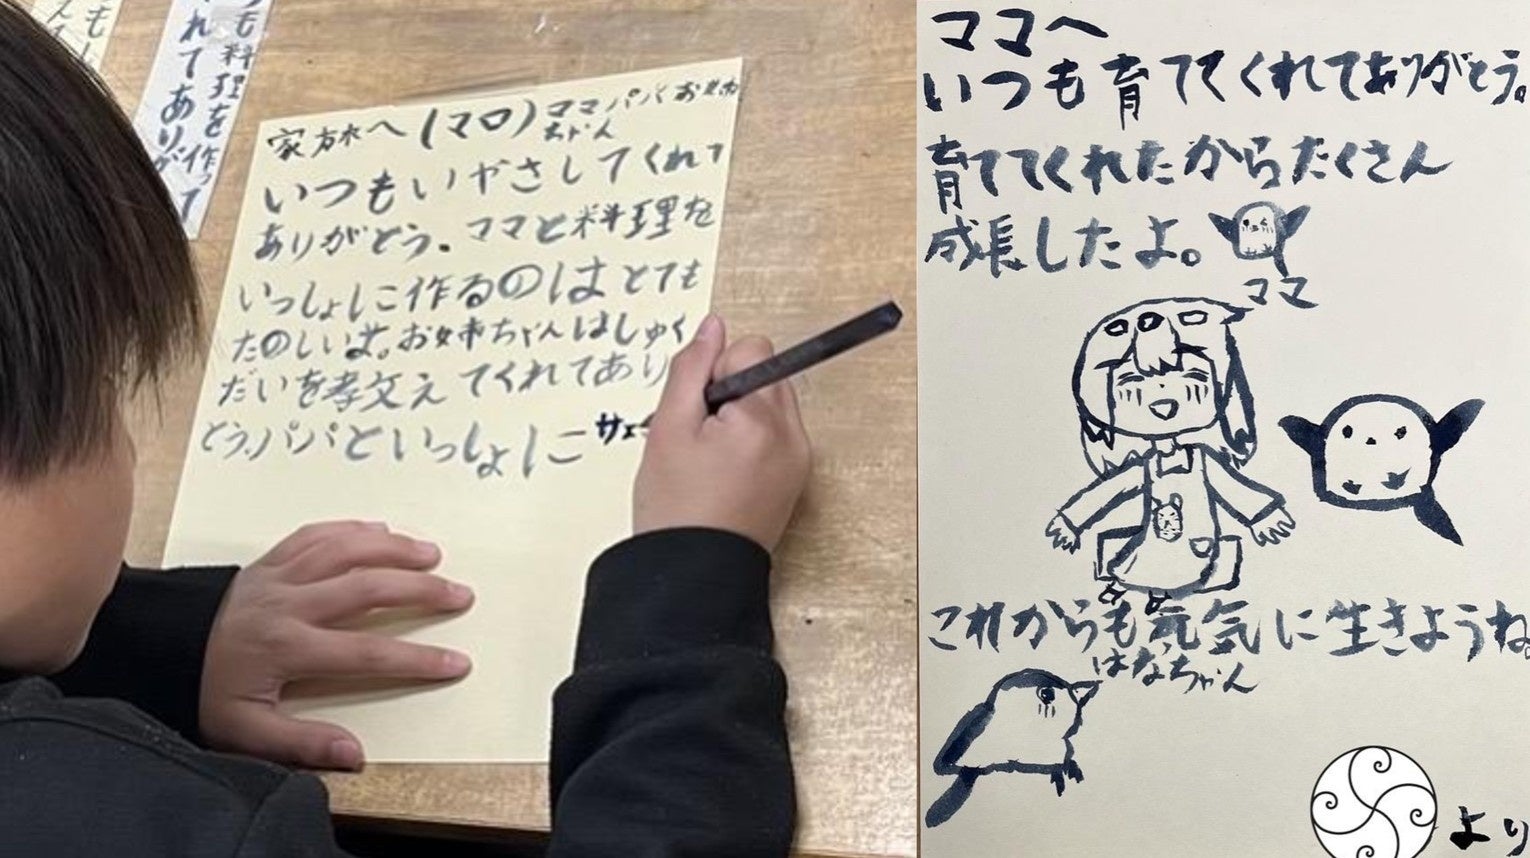 家族へ(マロ)ママパパお姉
ちゃん
いつもいやさしてくれて
ありがとう。ママと料理を
いっしょに作るのはとても
たのしいよ。お姉ちゃんはしゅく
だいを教えてくれてあり
とう。パパといっしょに
も料理を作って
れてあり
ママへ
いつも育ててくれてありがとう。
育ててくれたからたくさん
成長したよ。
ママ
これからも元気に生きようね。
はなちゃん
より